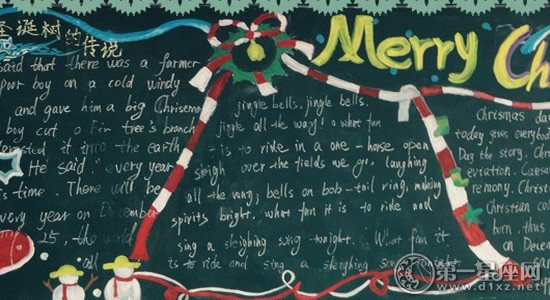 圣诞树的
传说
said that there was a farmer
poor boy on a cold windy
and gave him a big Chrisem
boy cut a fir tree's branch
into the earth
He said "every year
is time. There will be
every year on December
25, the world
call
jingle bells. jingle bells.
jingle all the way! o what fun
is to ride in a one-horse open
sleigh over the fields we go, laughing
all the way; bells on bob-tail ring, making
spirits bright. what fun it is to ride and
sing a sleighing song tonight. What fun it
is to ride and sing a sleighing song
Merry Ch
Christmas da
today give everybod
Day the story. Chri
eviation. Caesa
remony. Christ
Christian ca
born, thus
on Decem
第一星座网
www.d1xz.net